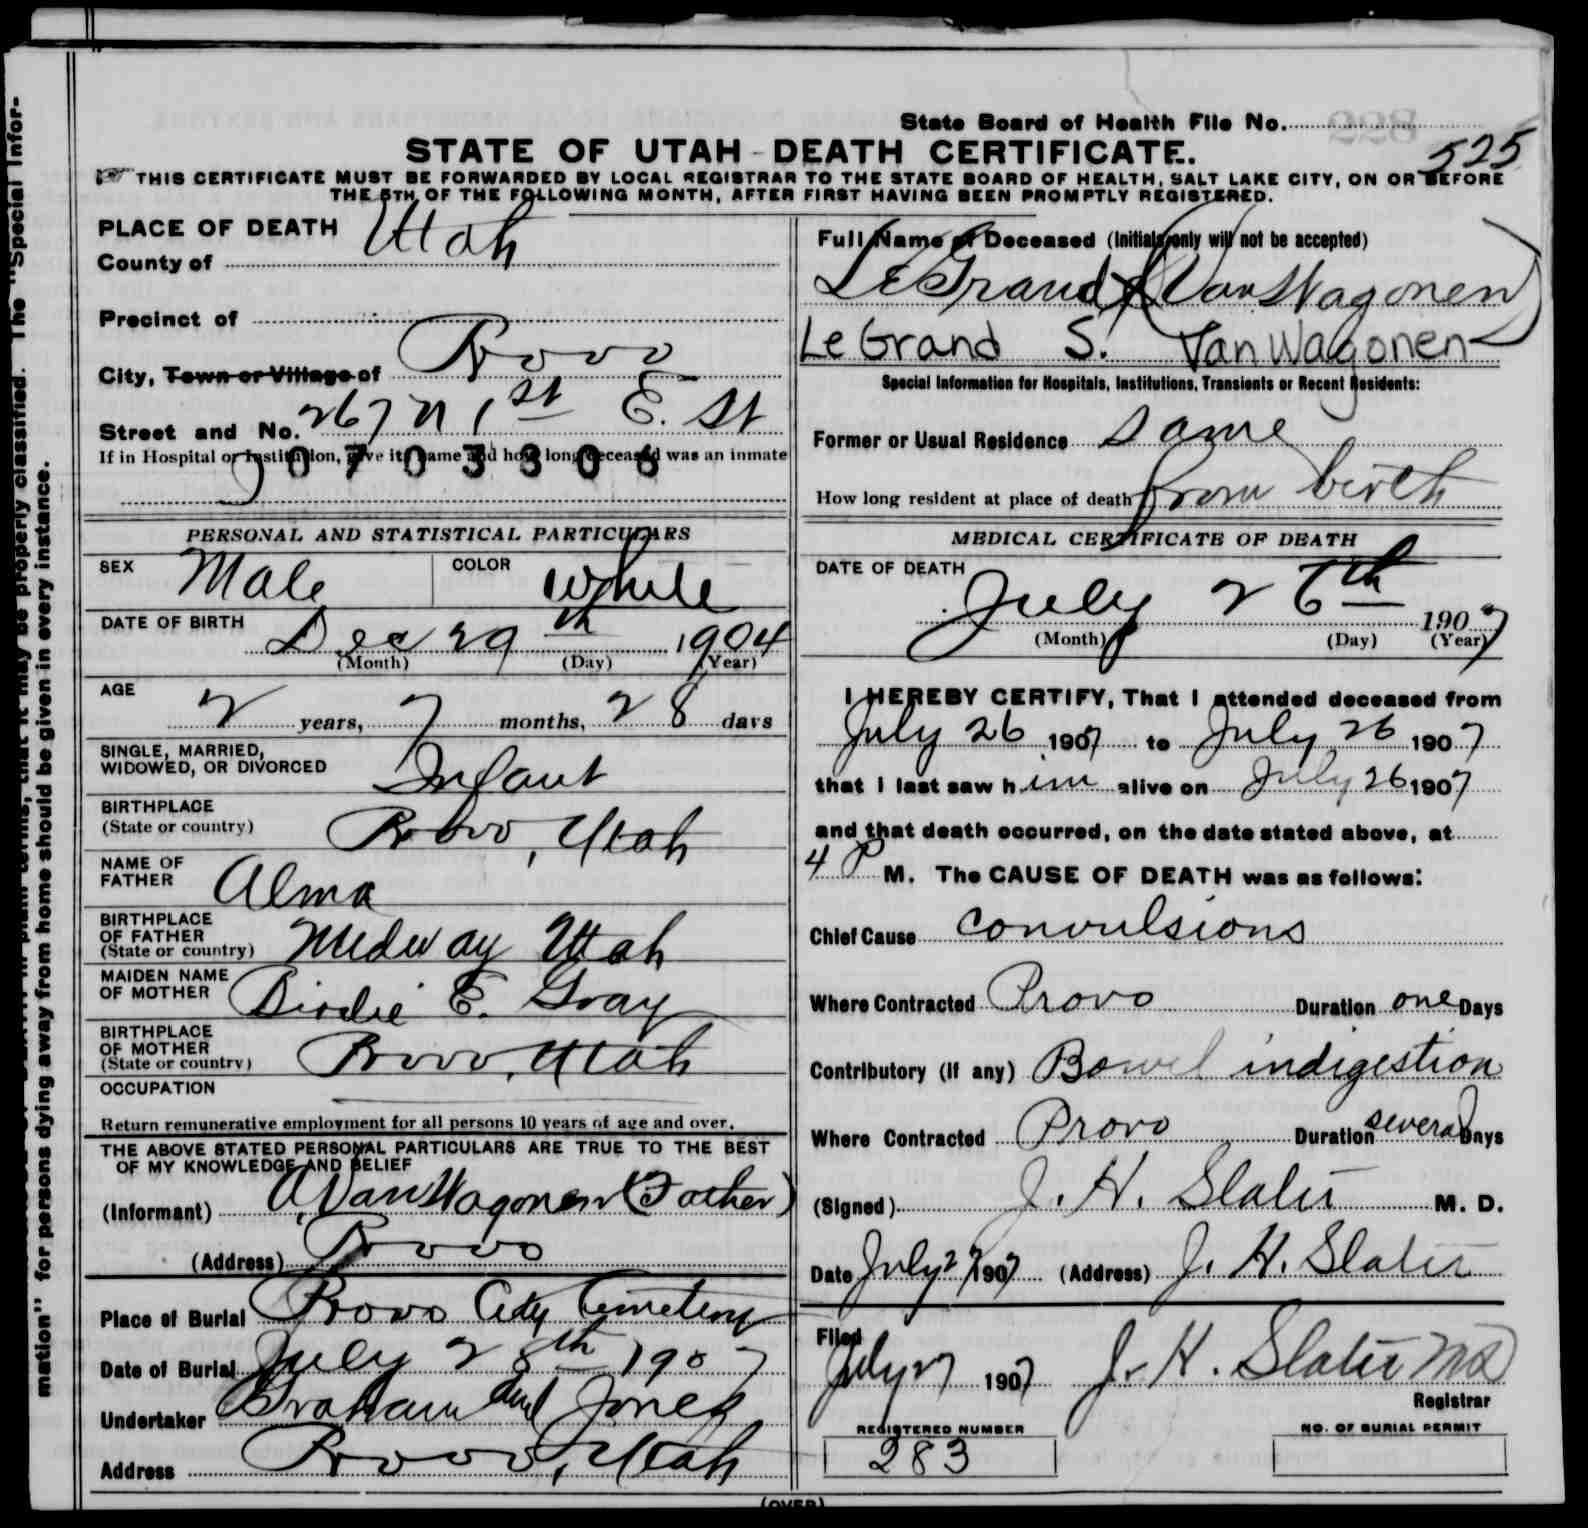 State Board of Health File No.
525
STATE OF UTAH - DEATH CERTIFICATE.
THIS CERTIFICATE MUST BE FORWARDED BY LOCAL REGISTRAR TO THE STATE BOARD OF HEALTH, SALT LAKE CITY, ON OR BEFORE
THE 5TH OF THE FOLLOWING MONTH, AFTER FIRST HAVING BEEN PROMPTLY REGISTERED.
PLACE OF DEATH
County of Utah
Precinct of
City, Town or Village of Provo
Street and No. 267 N 1st E. St
If in Hospital or Institution, give its name and how long deceased was an inmate
0703306
PERSONAL AND STATISTICAL PARTICULARS
SEX Male COLOR White
DATE OF BIRTH Dec 29th 1904
(Month) (Day) (Year)
AGE 2 years, 7 months, 28 days
SINGLE, MARRIED,
WIDOWED, OR DIVORCED Infant
BIRTHPLACE
(State or country) Provo, Utah
NAME OF
FATHER Alma
BIRTHPLACE
OF FATHER
(State or country) Midway Utah
MAIDEN NAME
OF MOTHER Birdie E. Gray
BIRTHPLACE
OF MOTHER
(State or country) Provo, Utah
OCCUPATION
Return remunerative employment for all persons 10 years of age and over.
THE ABOVE STATED PERSONAL PARTICULARS ARE TRUE TO THE BEST
OF MY KNOWLEDGE AND BELIEF
(Informant) A. VanWagonen (Father)
(Address) Provo
Place of Burial Provo City Cemetery
Date of Burial July 28th 1907
Undertaker Graham and Jones
Address Provo, Utah
Full Name of Deceased (Initials only will not be accepted)
LeGrand (VanWagonen)
LeGrand S. VanWagonen
Special Information for Hospitals, Institutions, Transients or Recent Residents:
Former or Usual Residence same
How long resident at place of death from birth
MEDICAL CERTIFICATE OF DEATH
DATE OF DEATH
July 26th 1907
(Month) (Day) (Year)
I HEREBY CERTIFY, That I attended deceased from
July 26 1907 to July 26 1907
that I last saw him alive on July 26 1907
and that death occurred, on the date stated above, at
4 P M. The CAUSE OF DEATH was as follows:
Chief Cause convulsions
Where Contracted Provo Duration one Days
Contributory (if any) Bowel indigestion
Where Contracted Provo Duration several Days
(Signed) J. H. Slater M. D.
Date July 27 1907 (Address) J. H. Slater
Filed
July 27 1907 J. H. Slater MD
Registrar
REGISTERED NUMBER
283
NO. OF BURIAL PERMIT
(OVER)
The "Special Infor-
mation" for persons dying away from home should be given in every instance.